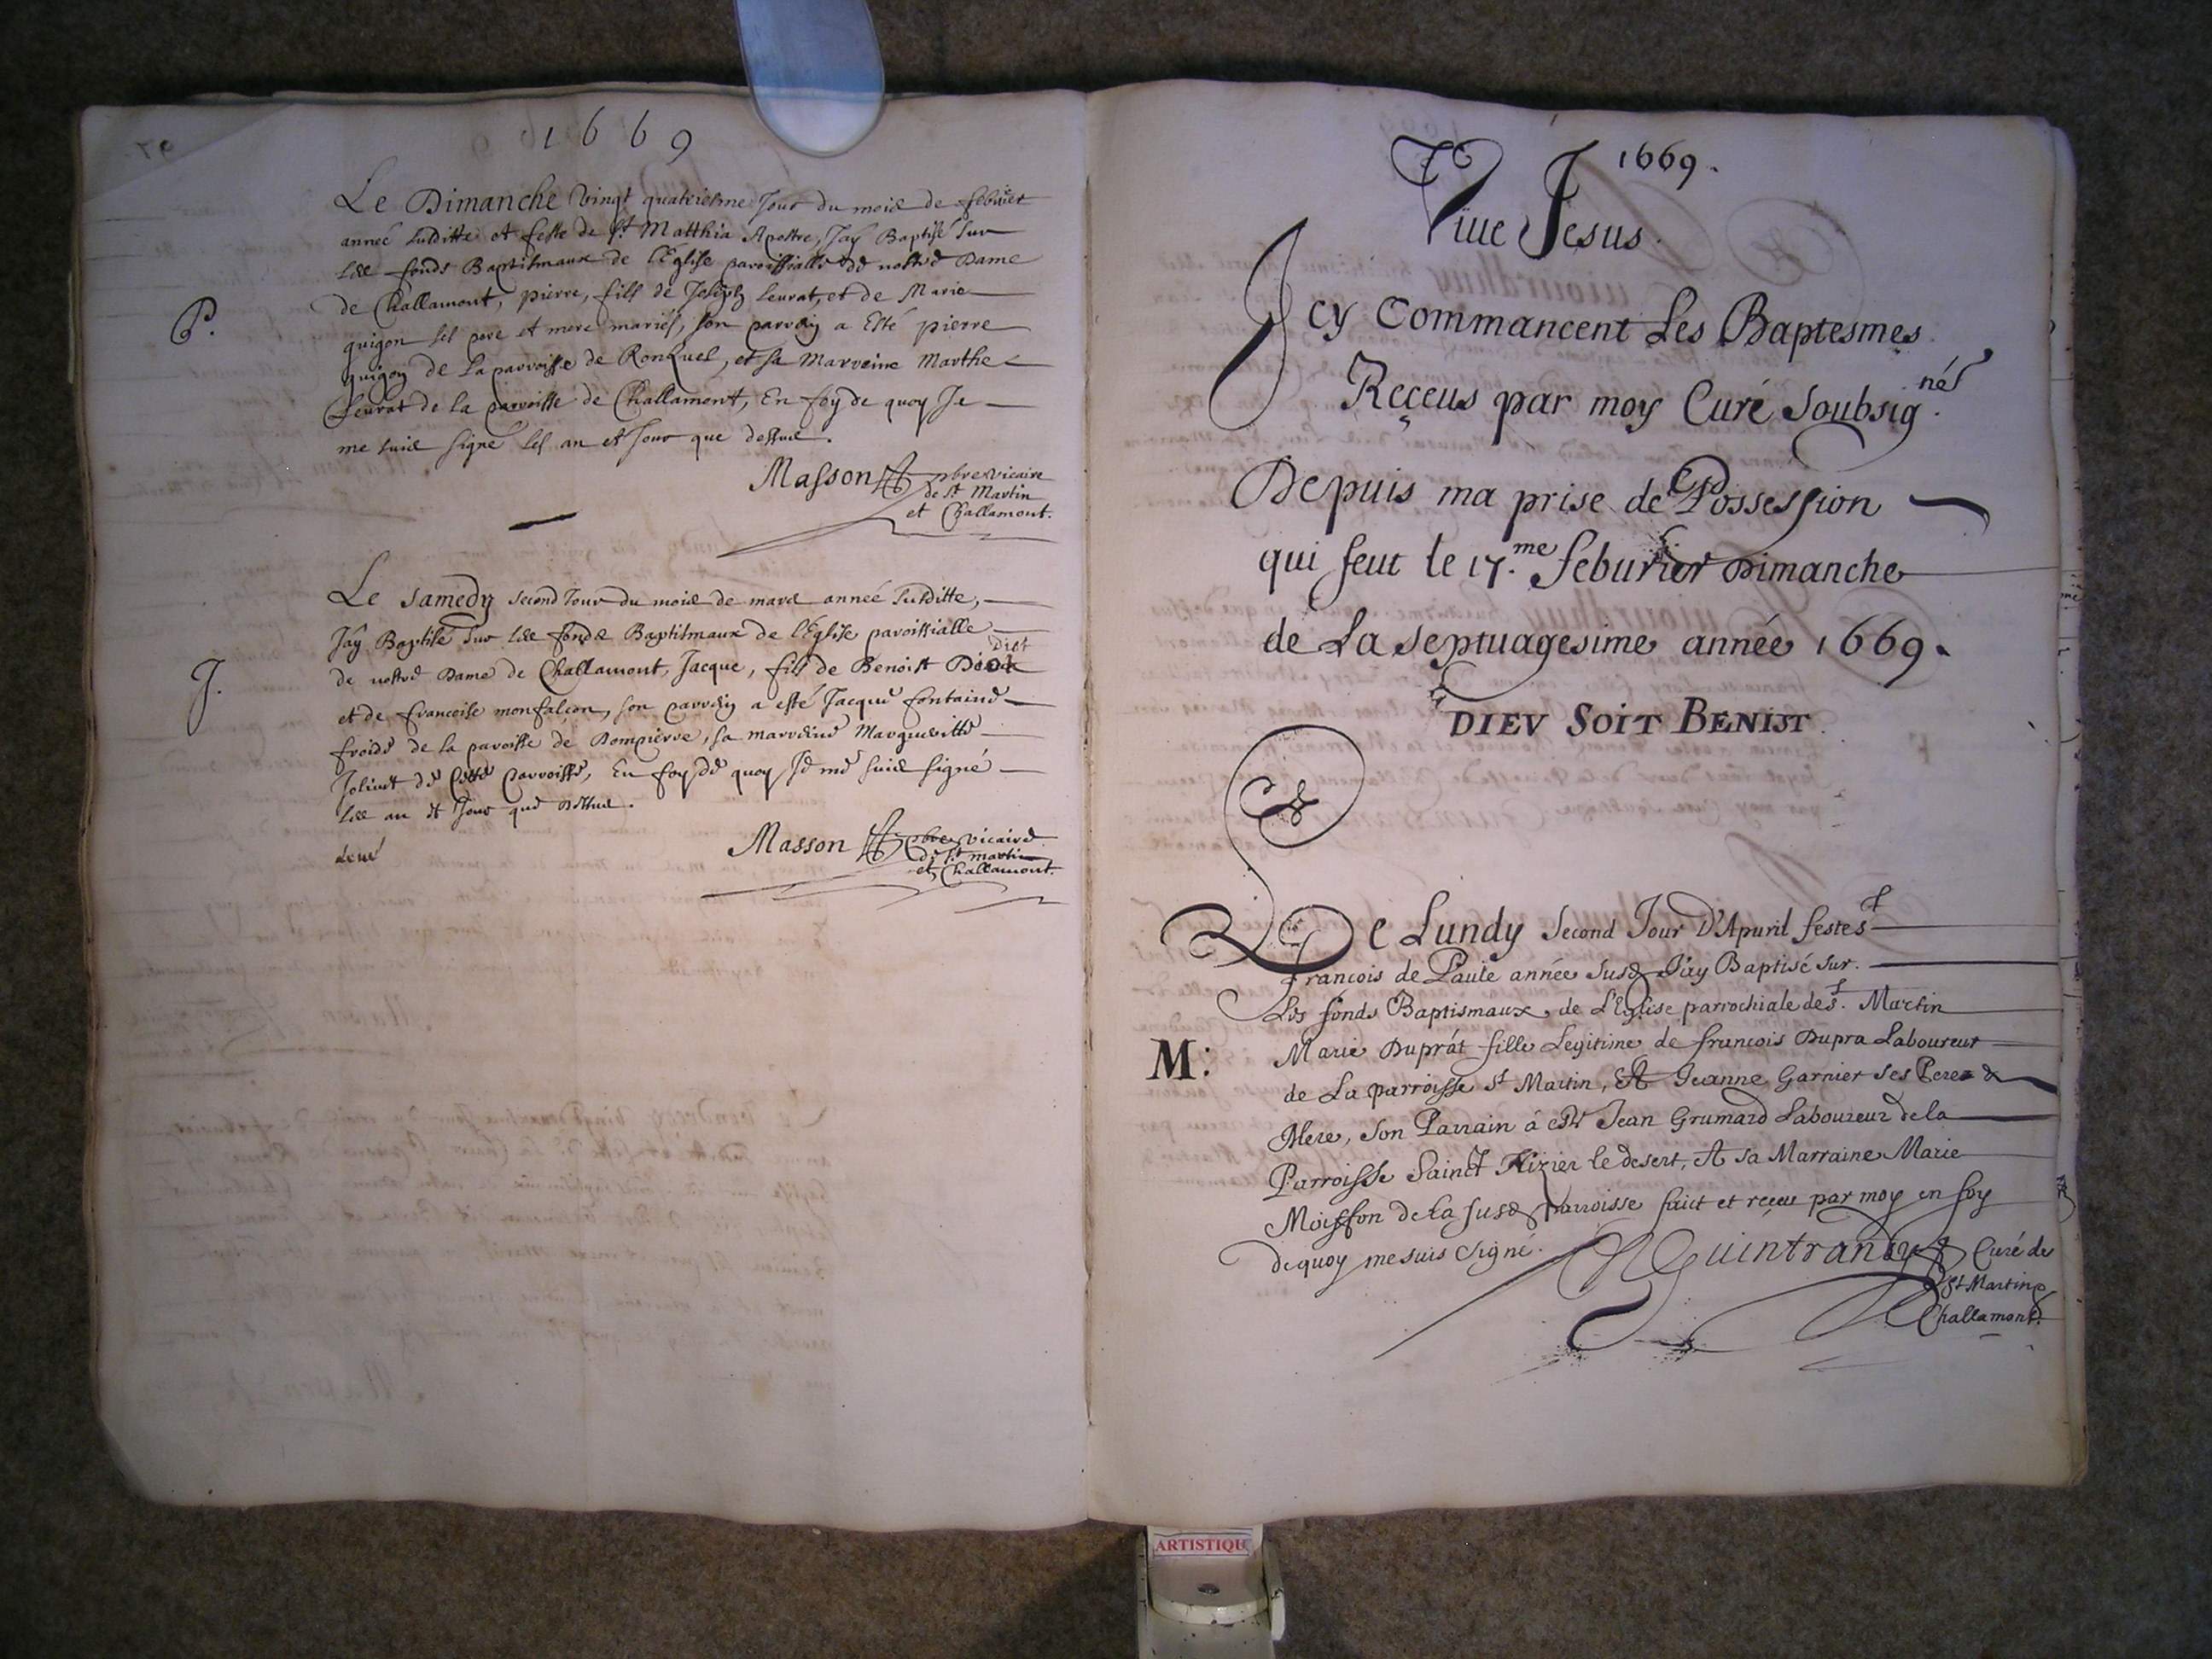 1669
Le Dimanche vingt quatriesme Jour du mois de febvrier
année susditte et feste de st Matthia Apostre, Jay Baptisé sur
les fonds Baptismaux de l'Eglise parroissialle de nostre Dame
de Challamont, pierre, fils de Joseph Leurat, et de Marie
P.
guigon ses pere et mere mariés, son parrein a Esté pierre
guigon de La parroisse de Ronzuel, et sa Marreine Marthe
Leurat de la parroisse de Challamont, En foy de quoy Je
me suis signé les an et Jour que dessus.
Masson pbre vicaire
de st Martin
et Challamont.
Le Samedy second Jour du mois de mars année susditte,
Jay Baptisé sur les fonds Baptismaux de l'Eglise parroissialle
Diot
de nostre Dame de Challamont, Jacque, fils de Benoist
J.
et de francoise monfalcon, son parrein a esté Jacque fontaine
froide de la parroisse de Dompierre, sa marreine Margueritte
Joliuet de cette parroisse, En foy de quoy Je me suis signé
les an et Jour que dessus.
Masson pbre vicaire
de st martin
et Challamont.
1669.
Viue Jesus.
Icy Commancent Les Baptesmes
Reçeus par moy Curé Soubsig.nés
Depuis ma prise de Possession
qui feut le 17.me feburier Dimanche
de La septuagesime année 1669.
DIEV SOIT BENIST.
Le Lundy Second Jour D'Apuril feste st
francois de Paule année susd. J'ay Baptisé sur.
Les fonds Baptismaux de L'Eglise parrochiale de st. Martin
M:
Marie Duprat fille Legitime de francois Dupra Laboureur
de La parroisse st Martin, Et Jeanne Garnier ses Pere &
Mere, son Parrain à esté Jean Grumard Laboureur de la
Parroisse Sainct Nizier le desert, Et sa Marraine Marie
Moisson de La susd. Parroisse faict et reçeu par moy en foy
de quoy me suis signé. Guintrandy Curé de
St Martin &
Challamont.